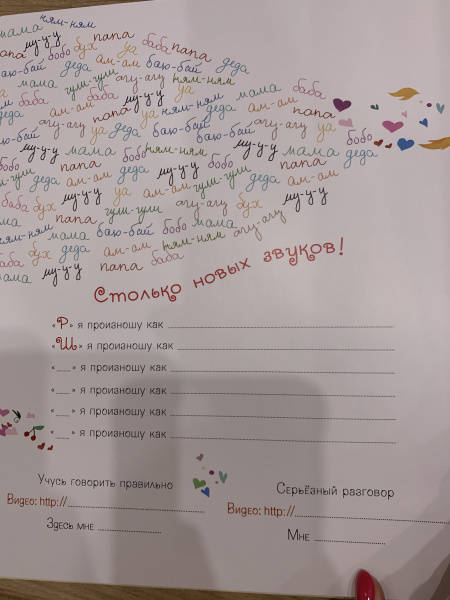 мама ням-ням
папа му-у-у папа
бобо бух уа баба папа деда
баю-бай деда ам-ам баю-бай
мама гули-гули агу-агу ням-ням
баба баба му-у-у уа
деда ам-ам папа уа ням-ням мама баба
баю-бай агу-агу уа деда баю-бай деда ам-ам папа
му-у-у мама бобо ням-ням баю-бай агу-агу уа бобо
бобо папа му-у-у мама деда
гули-гули деда ам-ам деда му-у-у бобо папа
баба бух му-у-у уа ам-ам гули-гули деда ам-ам
мама папа гули-гули агу-агу бух му-у-у
ням-ням мама баю-бай бобо мама
баба бух деда ам-ам ням-ням агу-агу
мама му-у-у папа баба
Столько новых звуков!
«Р» я произношу как
«Ш» я произношу как
«__» я произношу как
«__» я произношу как
«__» я произношу как
«__» я произношу как
Учусь говорить правильно
Видео: http://
Здесь мне
Серьёзный разговор
Видео: http://
Мне